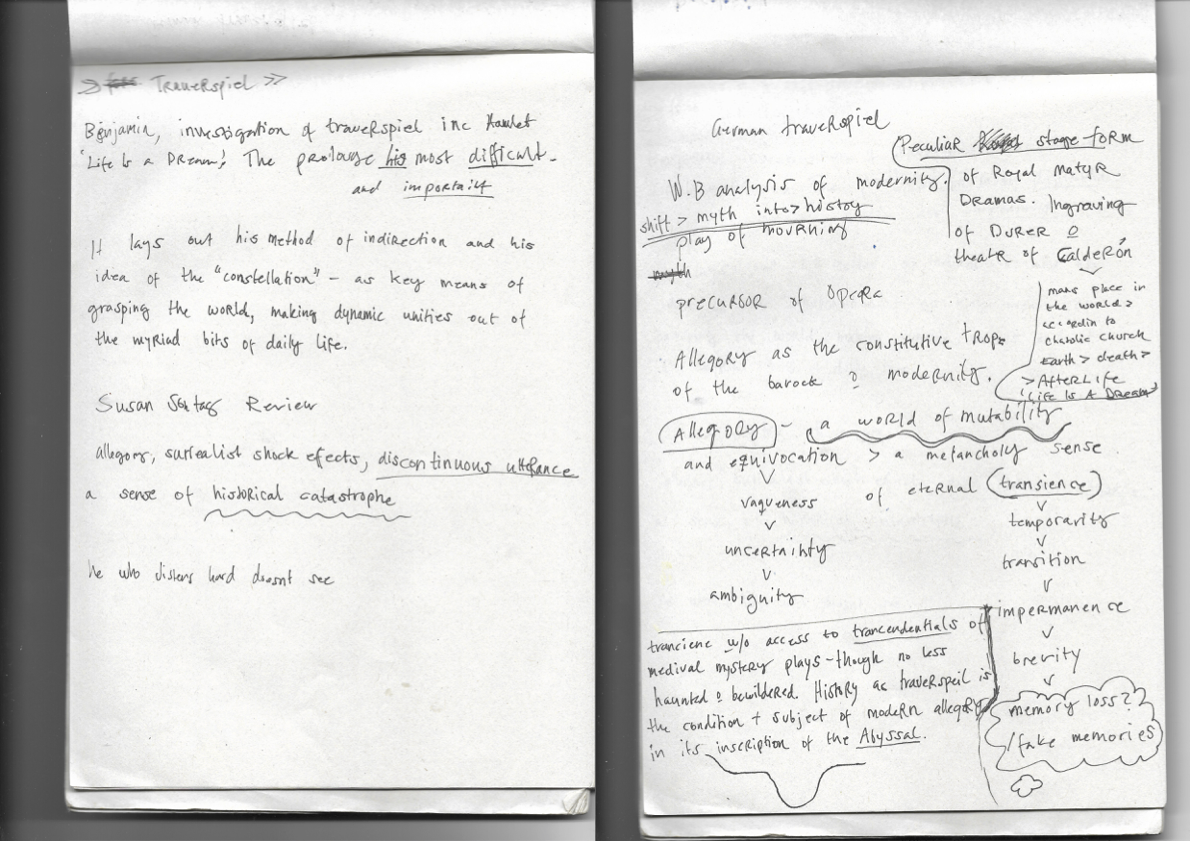 Trauerspiel >>
Benjamin, investigation of trauerspiel inc Hamlet
'Life Is a Dream'. The prolouge his most difficult.
and important
It lays out his method of indirection and his
idea of the "constellation" - as key means of
grasping the world, making dynamic unities out of
the myriad bits of daily life.
Susan Sontag Review
allegory, surrealist shock efects, discontinuous utterance
a sense of historical catastrophe
he who listens hard doesnt see
German traverspiel
Peculiar stage form
of Royal Matyr
Dramas. Ingraving
of Durer &
theatr of Calderón
mans place in
the world >
accordin to
Chatolic Church
Earth > death >
> AfterLife
'Life Is A Dream'
W.B analysis of modernity.
shift > myth into > history
play of mourning
myth
precursor of Opera
Allegory as the constitutive trope
of the barock & modernity.
Allegory - a world of mutability
and equivocation > a melancholy sense
of eternal transience
vagueness
uncertainty
ambiguity
temporarity
transition
impermanence
brevity
memory loss??
/ fake memories
trancienc w/o access to trancendentials of
medival mystery plays - though no less
haunted & bewildered. History as traverspeil is
the condition + subject of modern allegory
in its inscription of the Abyssal.